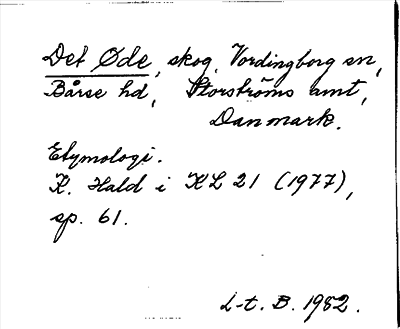 Det Øde, skog, Vordingborg sn,
Bårse hd, Storstrøms amt,
Danmark.
Etymologi.
K. Hald i KL 21 (1977),
sp. 61.
L-t. B. 1982.